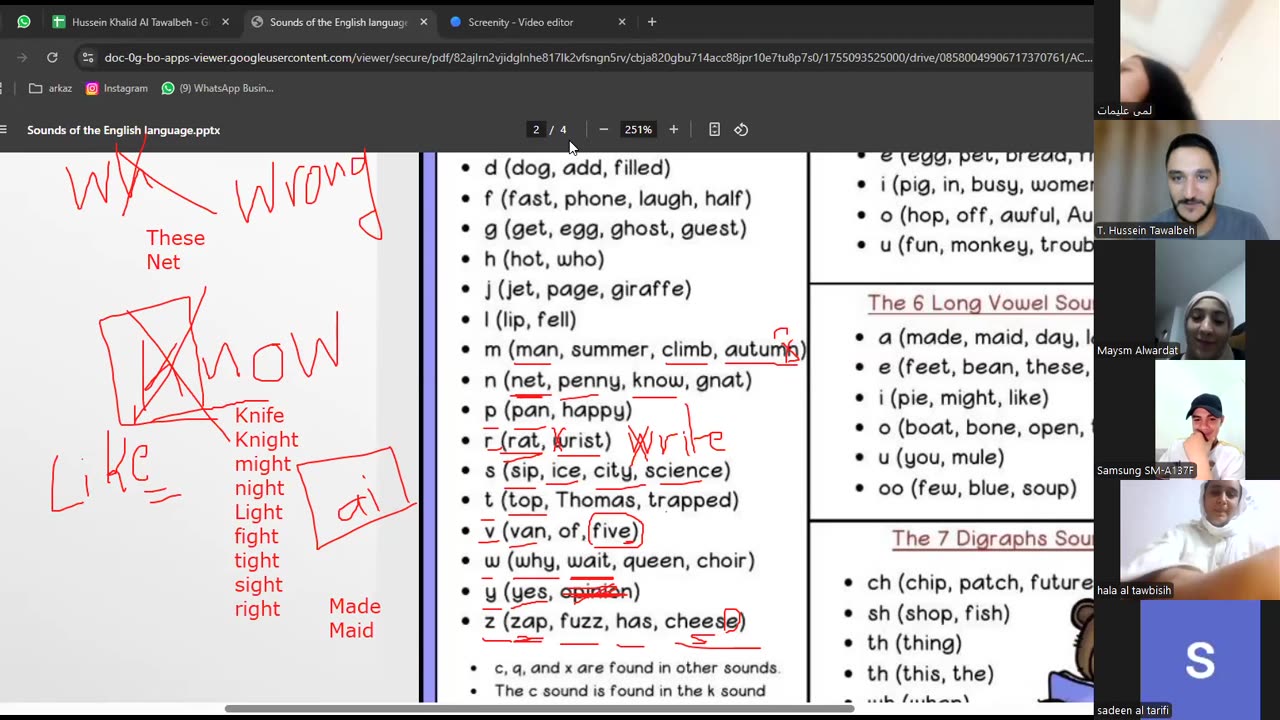 Hussein Khalid Al Tawalbeh - G
Sounds of the English language
Screenity - Video editor
doc-0g-bo-apps-viewer.googleusercontent.com/viewer/secure/pdf/82ajlrn2vjidglnhe817lk2vfsngn5rv/cbja820gbu714acc88jpr10e7tu8p7s0/1755093525000/drive/08580049906717370761/AC...
arkaz
Instagram
(9) WhatsApp Busin...
Sounds of the English language.pptx
2 / 4
251%
wh
wrong
These
Net
Know
Like
Knife
Knight
might
night
Light
fight
tight
sight
right
ai
Made
Maid
• d (dog, add, filled)
• f (fast, phone, laugh, half)
• g (get, egg, ghost, guest)
• h (hot, who)
• j (jet, page, giraffe)
• l (lip, fell)
• m (man, summer, climb, autumn)
• n (net, penny, know, gnat)
• p (pan, happy)
• r (rat, wrist)
write
• s (sip, ice, city, science)
• t (top, Thomas, trapped)
• v (van, of, five)
• w (why, wait, queen, choir)
• y (yes, opinion)
• z (zap, fuzz, has, cheese)
• c, q, and x are found in other sounds.
• The c sound is found in the k sound
• e (egg, pet, bread,
• i (pig, in, busy, women
• o (hop, off, awful, Au
• u (fun, monkey, troub
The 6 Long Vowel Sou
• a (made, maid, day,
• e (feet, bean, these,
• i (pie, might, like)
• o (boat, bone, open,
• u (you, mule)
• oo (few, blue, soup)
The 7 Digraphs Sou
• ch (chip, patch, future
• sh (shop, fish)
• th (thing)
• th (this, the)
لمى عليمات
T. Hussein Tawalbeh
Maysm Alwardat
Samsung SM-A137F
hala al tawbisih
S
sadeen al tarifi